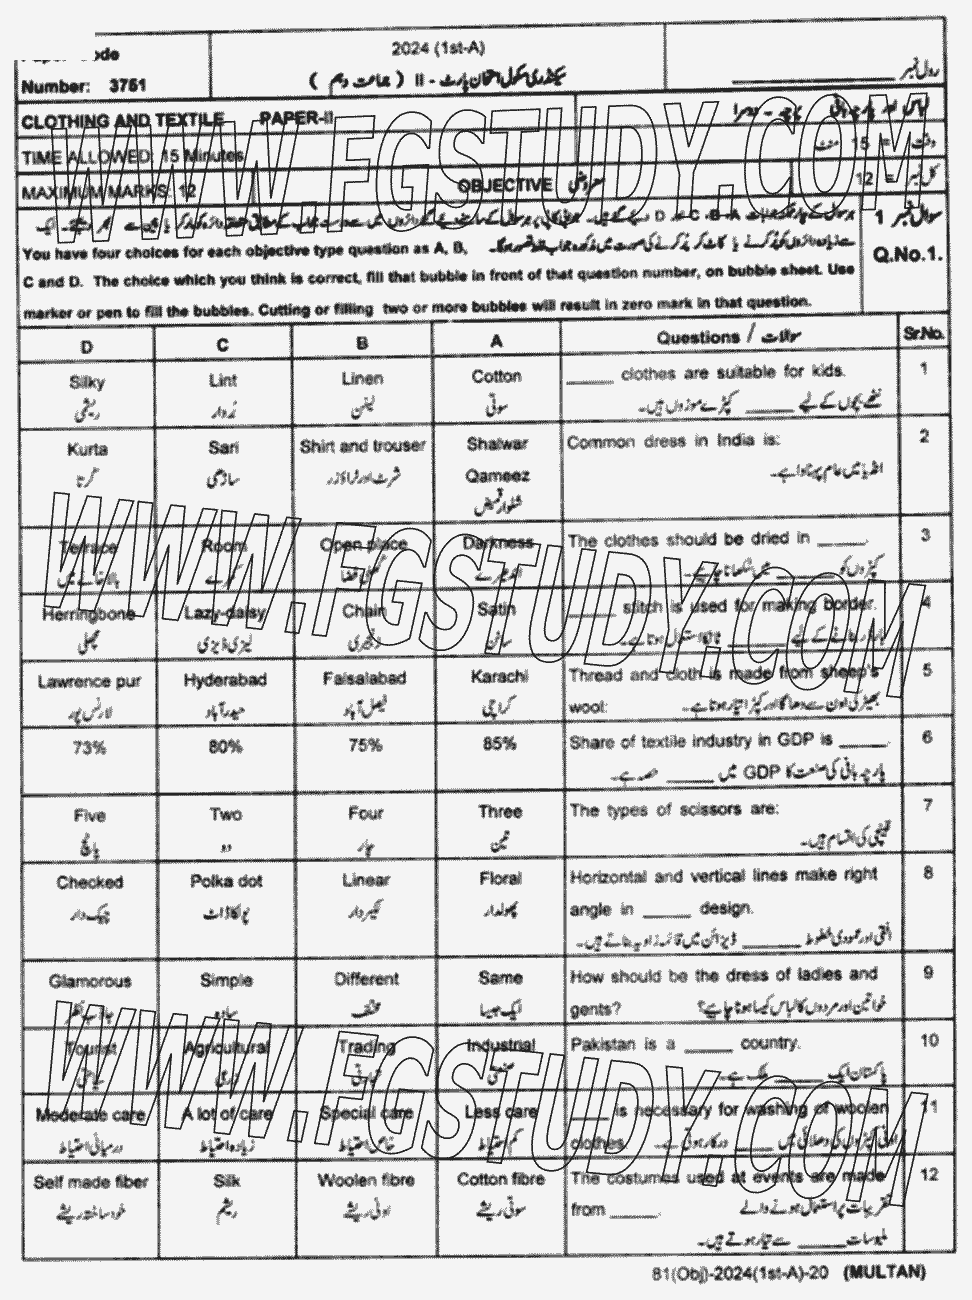 ode
2024 (1st-A)
رول نمبر
Number: 3751
سیکنڈری سکول امتحان پارٹ - II ( جماعت دہم )
CLOTHING AND TEXTILE PAPER-II
TIME ALLOWED: 15 Minutes
وقت = 15 منٹ
MAXIMUM MARKS: 12
OBJECTIVE معروضی
کل نمبر = 12
سوال نمبر 1
Q.No.1.
You have four choices for each objective type question as A, B,
C and D. The choice which you think is correct, fill that bubble in front of that question number, on bubble sheet. Use
marker or pen to fill the bubbles. Cutting or filling two or more bubbles will result in zero mark in that question.
D C B A Questions / سوالات Sr.No.
Silky Lint Linen Cotton _____ clothes are suitable for kids. 1
ریشمی رُودار لینن سوتی ننھے بچوں کے لیے _____ کپڑے موزوں ہیں۔
Kurta Sari Shirt and trouser Shalwar Common dress in India is: 2
Qameez
کُرتا ساڑھی شرٹ اور ٹراؤزر شلوار قمیض انڈیا میں عام پہناوا ہے۔
Terrace Room Open place Darkness The clothes should be dried in _____. 3
کمرے کھلی فضا اندھیرے کپڑوں کو _____ میں سُکھانا چاہیے۔
Herringbone Lazy-daisy Chain Satin _____ stitch is used for making border. 4
مچھلی لیزی ڈیزی زنجیری ساٹن
Lawrence pur Hyderabad Faisalabad Karachi Thread and cloth is made from sheep's 5
wool:
لارنس پور حیدرآباد فیصل آباد کراچی بھیڑ کی اون سے دھاگا اور کپڑا تیار ہوتا ہے۔
73% 80% 75% 85% Share of textile industry in GDP is _____. 6
پارچہ بافی کی صنعت کا GDP میں _____ حصہ ہے۔
Five Two Four Three The types of scissors are: 7
پانچ دو چار تین قینچی کی اقسام ہیں۔
Checked Polka dot Linear Floral Horizontal and vertical lines make right 8
angle in _____ design.
چیک دار پولکا ڈاٹ لکیردار پھولدار افقی اور عمودی خطوط _____ ڈیزائن میں قائمہ زاویہ بناتے ہیں۔
Glamorous Simple Different Same How should be the dress of ladies and 9
gents?
جاذب نظر سادہ مختلف ایک جیسا خواتین اور مردوں کا لباس کیسا ہونا چاہیے؟
Tourist Agricultural Trading Industrial Pakistan is a _____ country. 10
زرعی تجارتی صنعتی پاکستان ایک _____ ملک ہے۔
Moderate care A lot of care Special care Less care _____ is necessary for washing of woolen 11
clothes.
درمیانی احتیاط زیادہ احتیاط خاص احتیاط کم احتیاط اونی کپڑوں کی دھلائی میں _____ درکار ہوتی ہے۔
Self made fiber Silk Woolen fibre Cotton fibre The costumes used at events are made 12
from _____.
خود ساختہ ریشے ریشم اونی ریشے سوتی ریشے تقریبات پر استعمال ہونے والے
ملبوسات _____ سے تیار ہوتے ہیں۔
81(Obj)-2024(1st-A)-20 (MULTAN)
WWW.FGSTUDY.COM
WWW.FGSTUDY.COM
WWW.FGSTUDY.COM